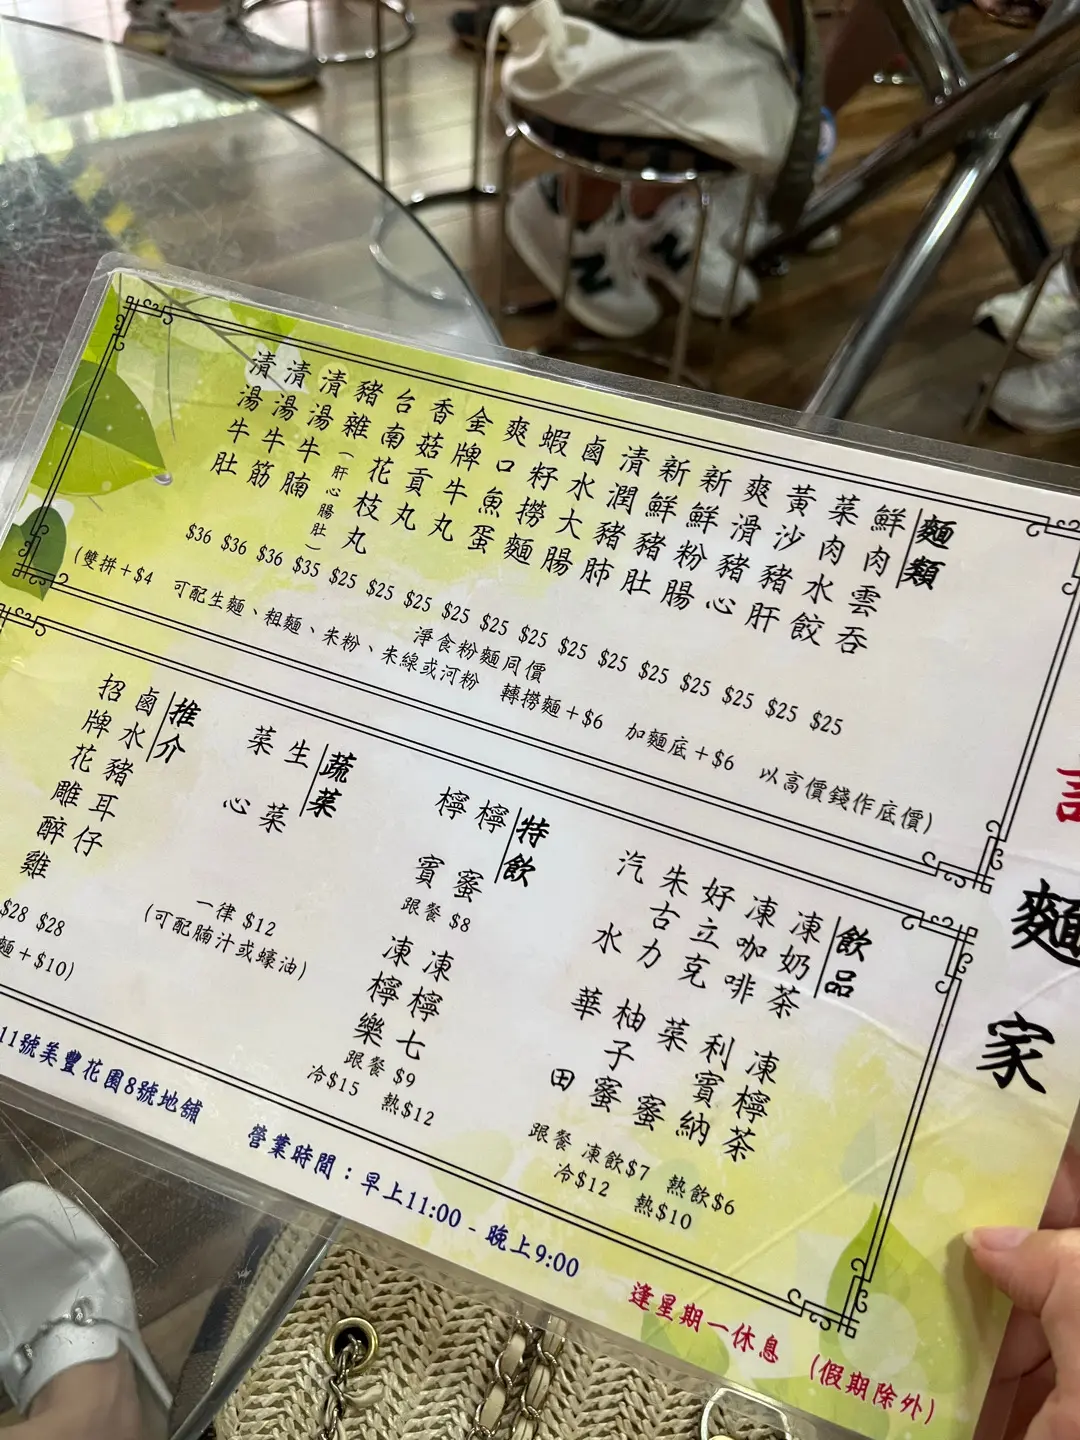 麵類
鮮肉雲吞
菜肉水餃
黃沙豬肝
爽滑豬心
新鮮粉腸
新鮮豬肚
清潤豬肺
鹵水大腸
蝦籽撈麵
爽口魚蛋
金牌牛丸
香菇貢丸
台南花枝丸
豬雜(肝心腸肚)
清湯牛腩
清湯牛筋
清湯牛肚
$36 $36 $36 $35 $25 $25 $25 $25 $25 $25 $25 $25 $25 $25 $25 $25 $25
淨食粉麵同價
(雙拼+$4 可配生麵、粗麵、朱粉、朱線或河粉 轉撈麵+$6 加麵底+$6 以高價錢作底價)
飲品
凍奶茶
凍咖啡
好立克
朱古力
汽水
凍檸茶
利賓納
菜蜜
柚子蜜
華田
跟餐 凍飲$7 熱飲$6
冷$12 熱$10
特飲
檸蜜
檸賓
跟餐 $8
凍檸七
凍檸樂
跟餐 $9
冷$15 熱$12
蔬菜
生菜
菜心
一律 $12
(可配腩汁或蠔油)
推介
鹵水豬耳仔
招牌花雕醉雞
$28 $28
麵+$10)
麵家
11號美豐花園8號地舖 營業時間:早上11:00 - 晚上9:00 逢星期一休息 (假期除外)